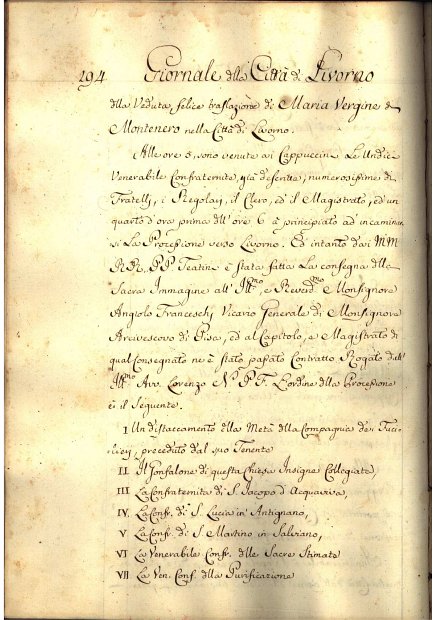 194 Giornale della Città di Livorno
della Veduta, felice traslazione di Maria Vergine di
Montenero nella Città di Livorno.
Alle ore 5, sono venute ai Cappuccini Le Undici
Venerabile Confraternite, già descritte, numerosissime di
Fratelli, i Regolari, il Clero, ed il Magistrato, ed un
quarto d'ora prima dell'ore 6 à principiato ad incammina-
si La Processione verso Livorno. Ed intanto dai MM
RR. PP Teatini è stata fatta La consegna della
Sacra Immagine all' Ill.mo e Reverd.mo Monsignore
Angiolo Franceschi Vicario Generale di Monsignore
Arcivescovo di Pisa, ed al Capitolo, e Magistrato di
qual Consegnato ne è stato passato Contratto Rogato dall'
Ill.mo Avv. Lorenzo N. P. F. L'ordine della Processione
è il seguente.
I Un distaccamento della Metà della Compagnia dei Fuci-
lieri, preceduto dal suo Tenente
II Il Gonfalone di questa Chiesa Insigne Collegiata
III La Confraternita di S. Jacopo d'Acquaviva,
IV. La Confr. di S. Lucia in Antignano,
V La Confr. di S. Martino in Salviano,
VI La Venerabile Confr. delle Sacre Stimate
VII La Ven. Conf. della Purificazione